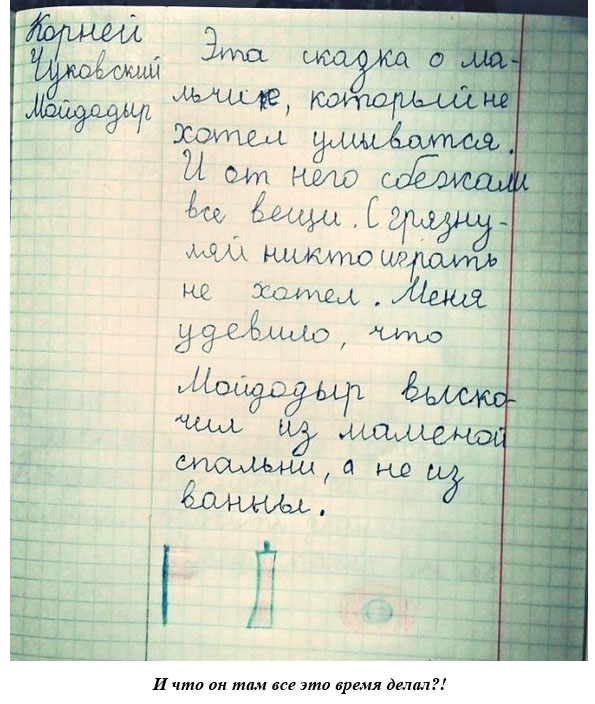 Корней
Чуковский
Мойдодыр
Эта сказка о ма-
льчике, который не
хотел умыватся.
И от него сбежали
все вещи. С грязну-
ляй никто играть
не хотел. Меня
удевило, что
Мойдодыр выско-
чил из маменой
спальни, а не из
ванны.
И что он там все это время делал?!